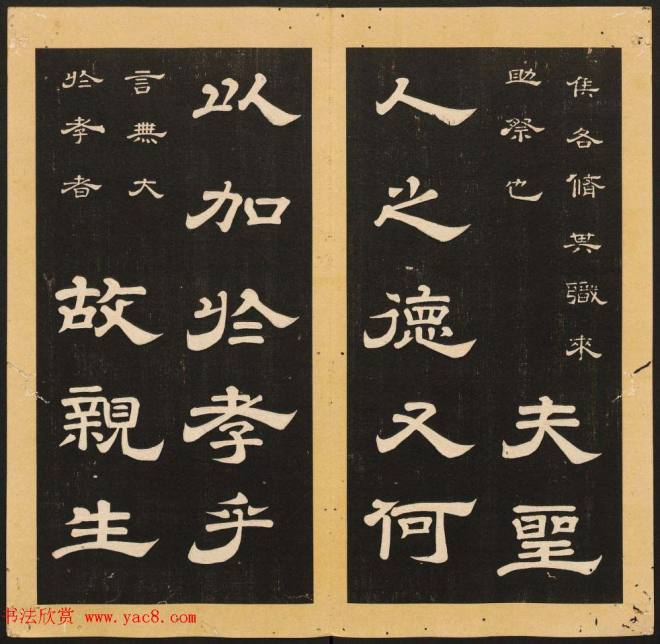 侯各脩其職來
助祭也
夫聖
人之德又何
以加於孝乎
言無大
於孝者
故親生
书法欣赏 www.yac8.com